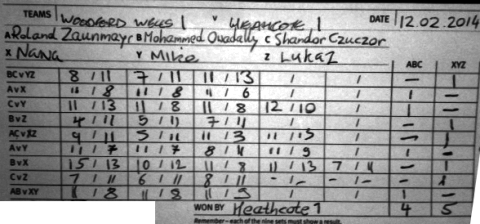 TEAMS WOODFORD WELLS 1 V HEATHCOTE 1 DATE 12.02.2014
A Roland Zaunmayr B Mohammed Quadally C Shandor Czuczor
X Nana Y Mike Z Lukaz
ABC XYZ
BCvYZ 8 / 11 7 / 11 11 / 13 / / - 1
AvX 11 / 8 11 / 8 11 / 6 / / 1 -
CvY 11 / 13 11 / 8 11 / 8 12 / 10 / 1 -
BvZ 4 / 11 5 / 11 7 / 11 / / - 1
ACvXZ 9 / 11 5 / 11 11 / 3 / - 1
AvY 11 / 7 11 / 7 8 / 11 / 9 / 1 -
BvX 15 / 13 10 / 12 11 / 8 11 / 13 7 / 11 - 1
CvZ 7 / 11 6 / 11 8 / 11 - / - - / - - 1
ABvXY / 8 11 / 8 11 / / / 1 -
WON BY Heathcote 1 4 5
Remember – each of the nine sets must show a result.